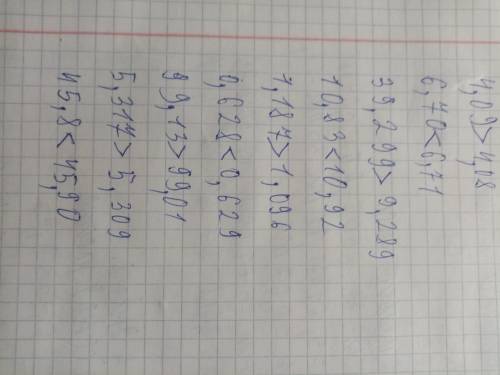 4,09>4,08
6,70<6,71
39,299>9,289
10,83<10,92
1,187>1,096
0,628<0,629
99,13>99,01
5,317>5,309
45,8<45,90